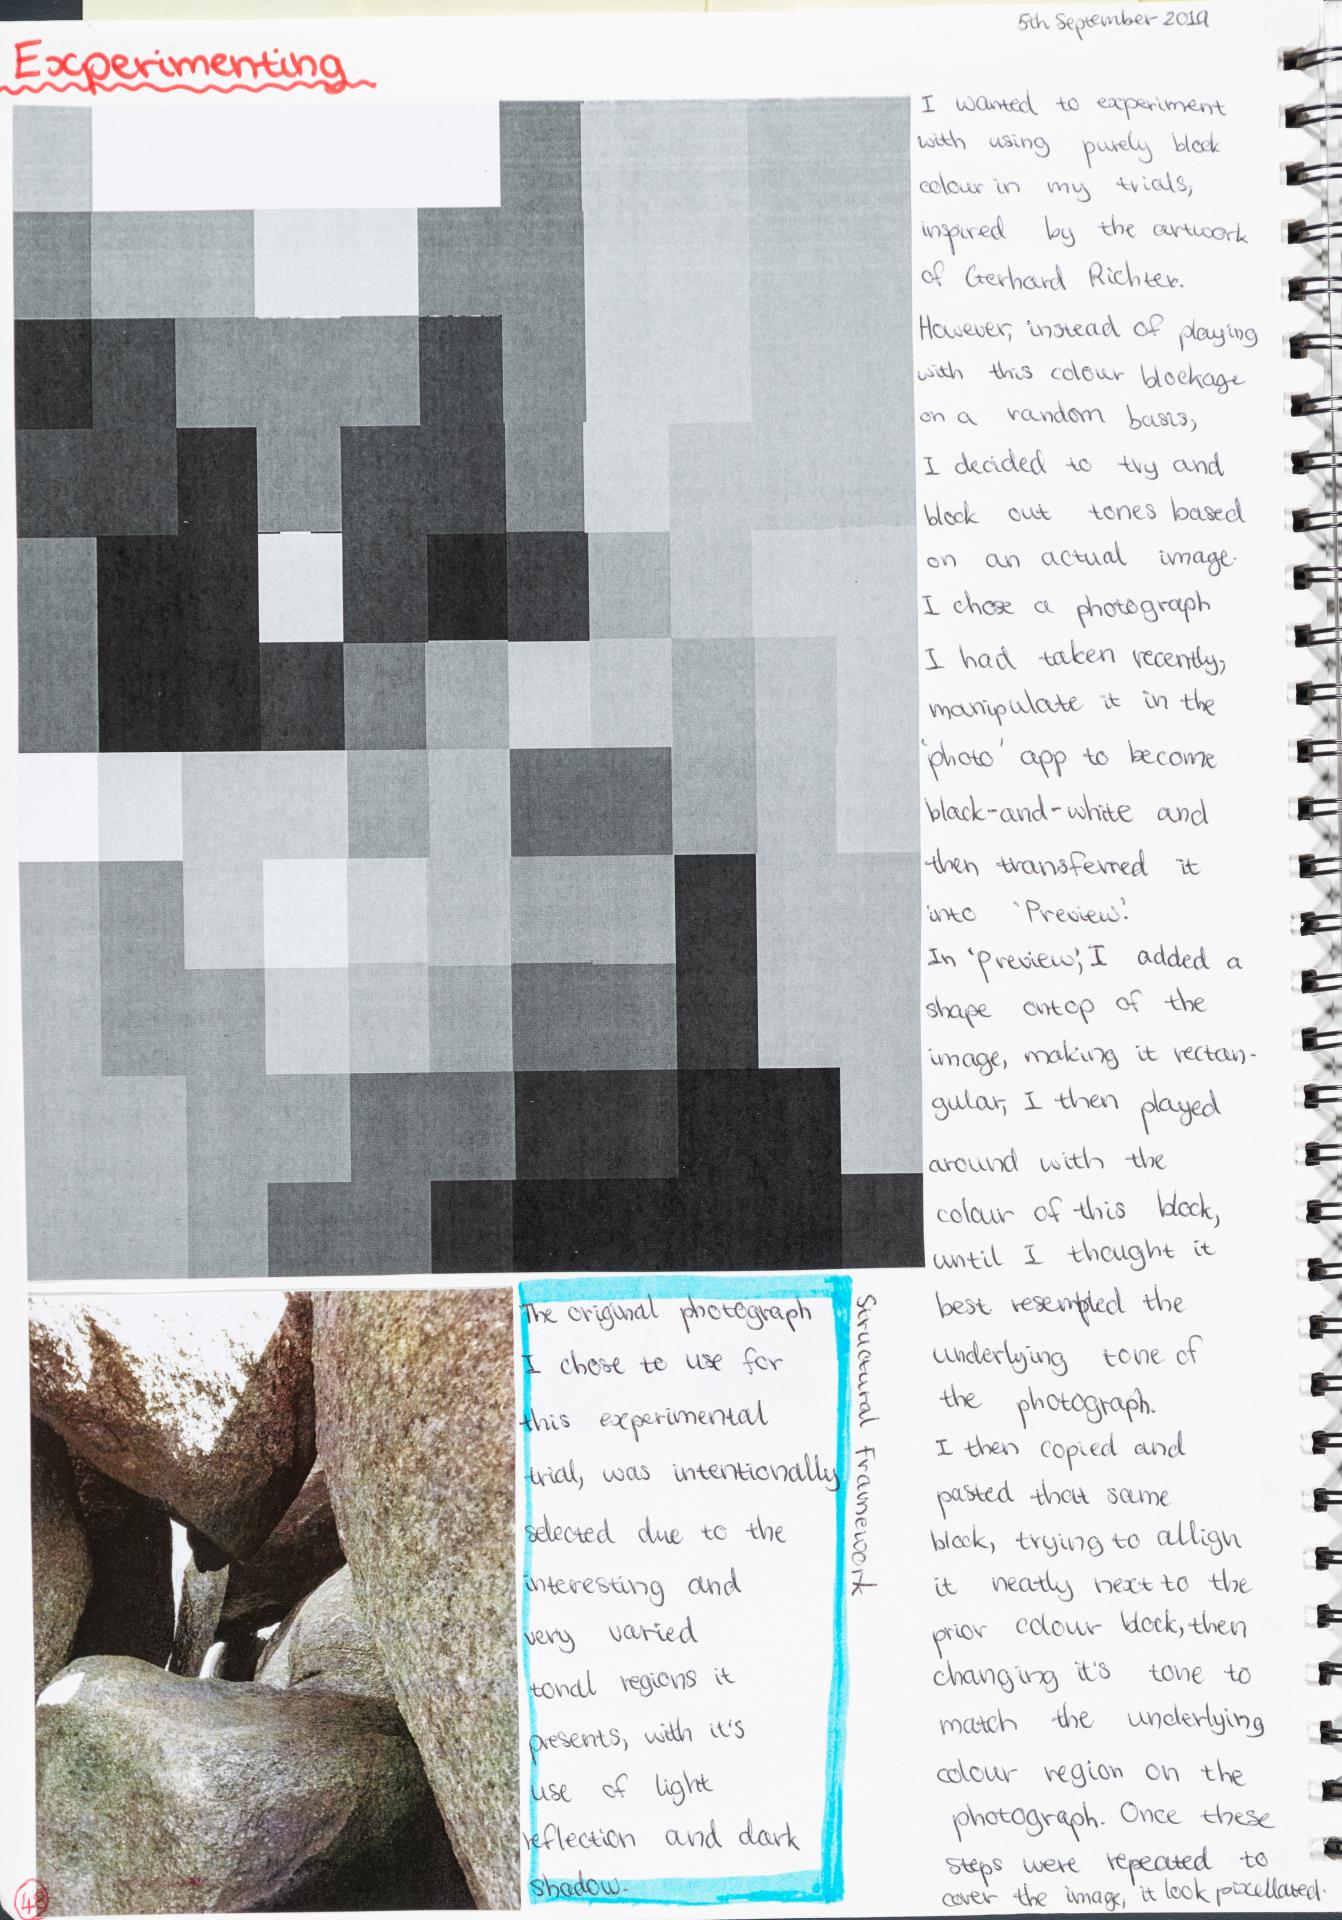 5th September 2019
Experimenting
I wanted to experiment
with using purely block
colour in my trials,
inspired by the artwork
of Gerhard Richter.
However, instead of playing
with this colour blockage
on a random basis,
I decided to try and
block out tones based
on an actual image.
I chose a photograph
I had taken recently,
manipulate it in the
'photo' app to become
black-and-white and
then transferred it
into 'Preview'.
In 'preview', I added a
shape ontop of the
image, making it rectan-
gular, I then played
around with the
colour of this block,
until I thought it
best resempled the
underlying tone of
the photograph.
I then copied and
pasted that same
block, trying to allign
it neatly next to the
prior colour block, then
changing it's tone to
match the underlying
colour region on the
photograph. Once these
steps were repeated to
cover the image, it look pixellated.
The original photograph
I chose to use for
this experimental
trial, was intentionally
selected due to the
interesting and
very varied
tonal regions it
presents, with it's
use of light
reflection and dark
shadow.
Structural Framework